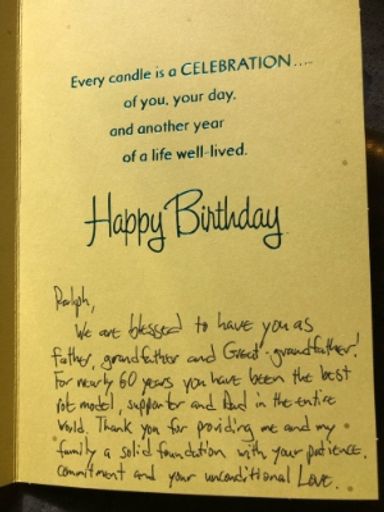 Every candle is a CELEBRATION....
of you, your day,
and another year
of a life well-lived.
Happy Birthday
Ralph,
We are blessed to have you as
father, grandfather and Great-grandfather!
For nearly 60 years you have been the best
rol model, supporter and Dad in the entire
World. Thank you for providing me and my
family a solid foundation with your patience,
commitment and your unconditional Love.